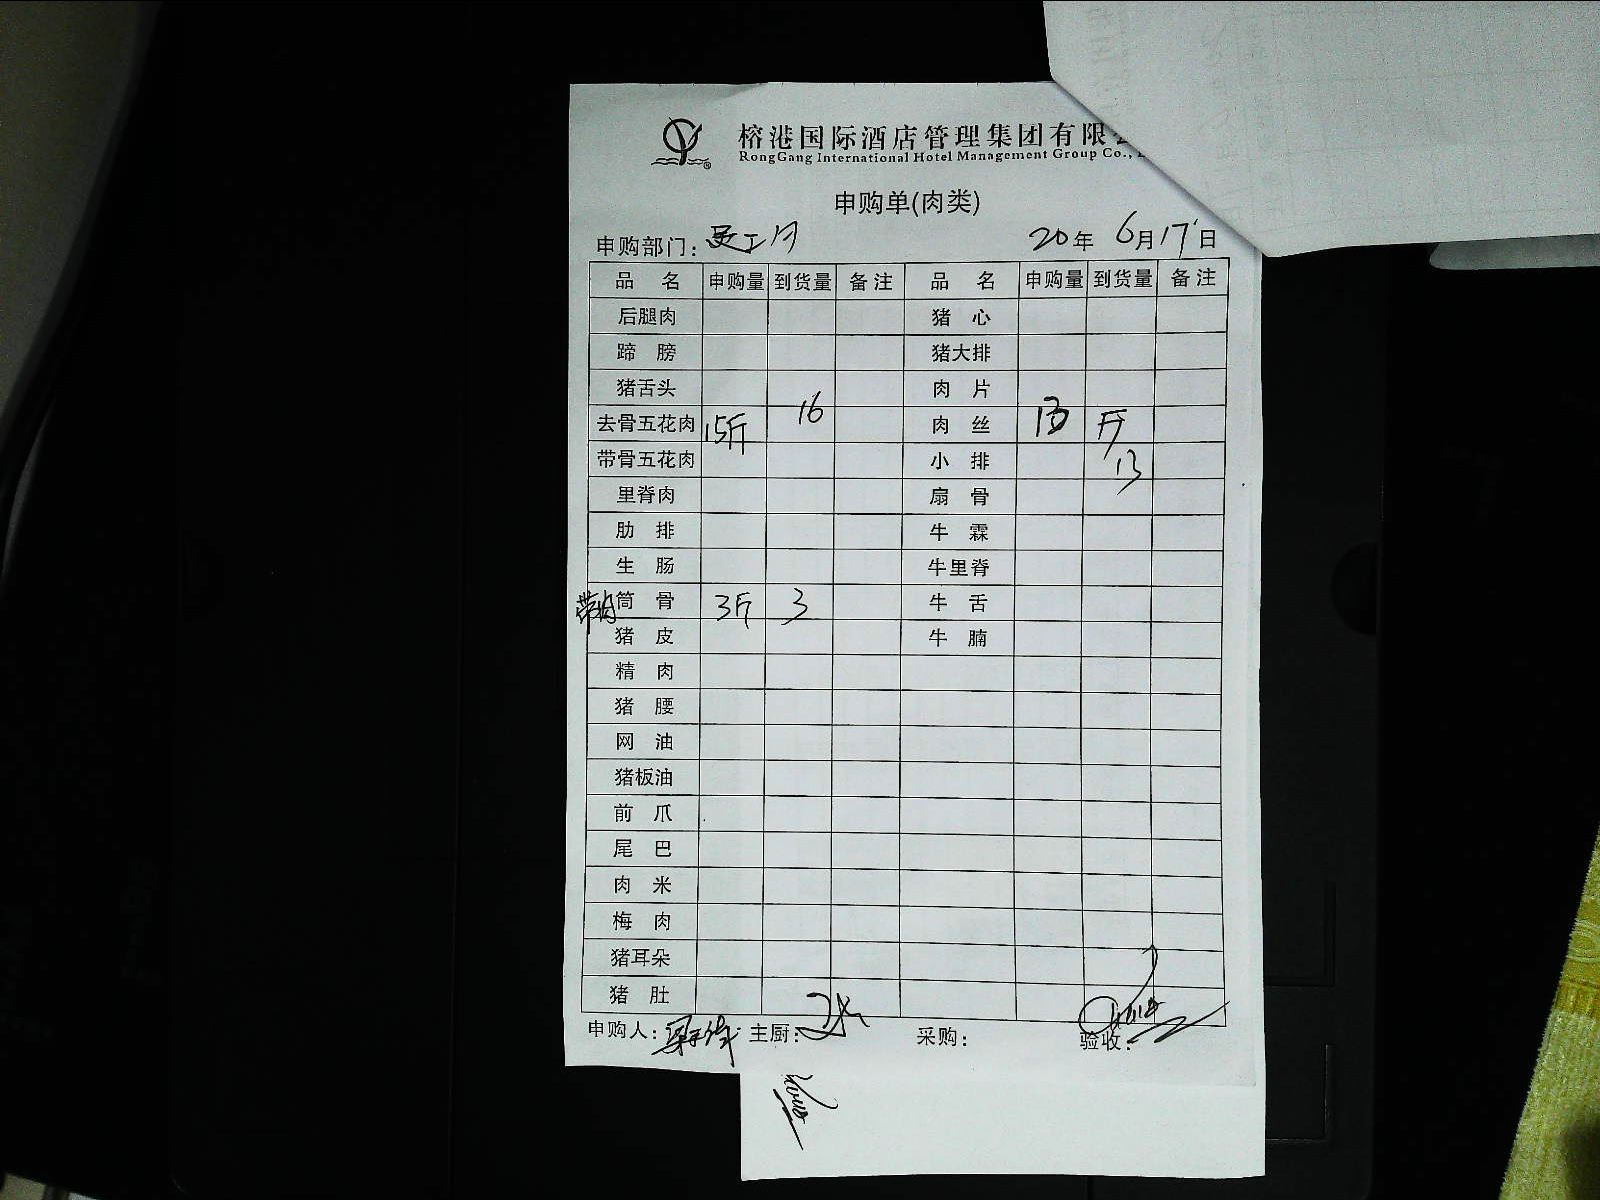 榕港国际酒店管理集团有限
RongGang International Hotel Management Group Co.,
申购单(肉类)
申购部门: 员工 20年 6月17日
品 名 申购量 到货量 备注 品 名 申购量 到货量 备注
后腿肉 猪 心
蹄 膀 猪大排
猪舌头 肉 片
去骨五花肉 15斤 16 肉 丝 13 斤
带骨五花肉 小 排 13
里脊肉 扇 骨
肋 排 牛 霖
生 肠 牛里脊
带肉 筒 骨 3斤 3 牛 舌
猪 皮 牛 腩
精 肉
猪 腰
网 油
猪板油
前 爪
尾 巴
肉 米
梅 肉
猪耳朵
猪 肚
申购人: 主厨: 采购: 验收: